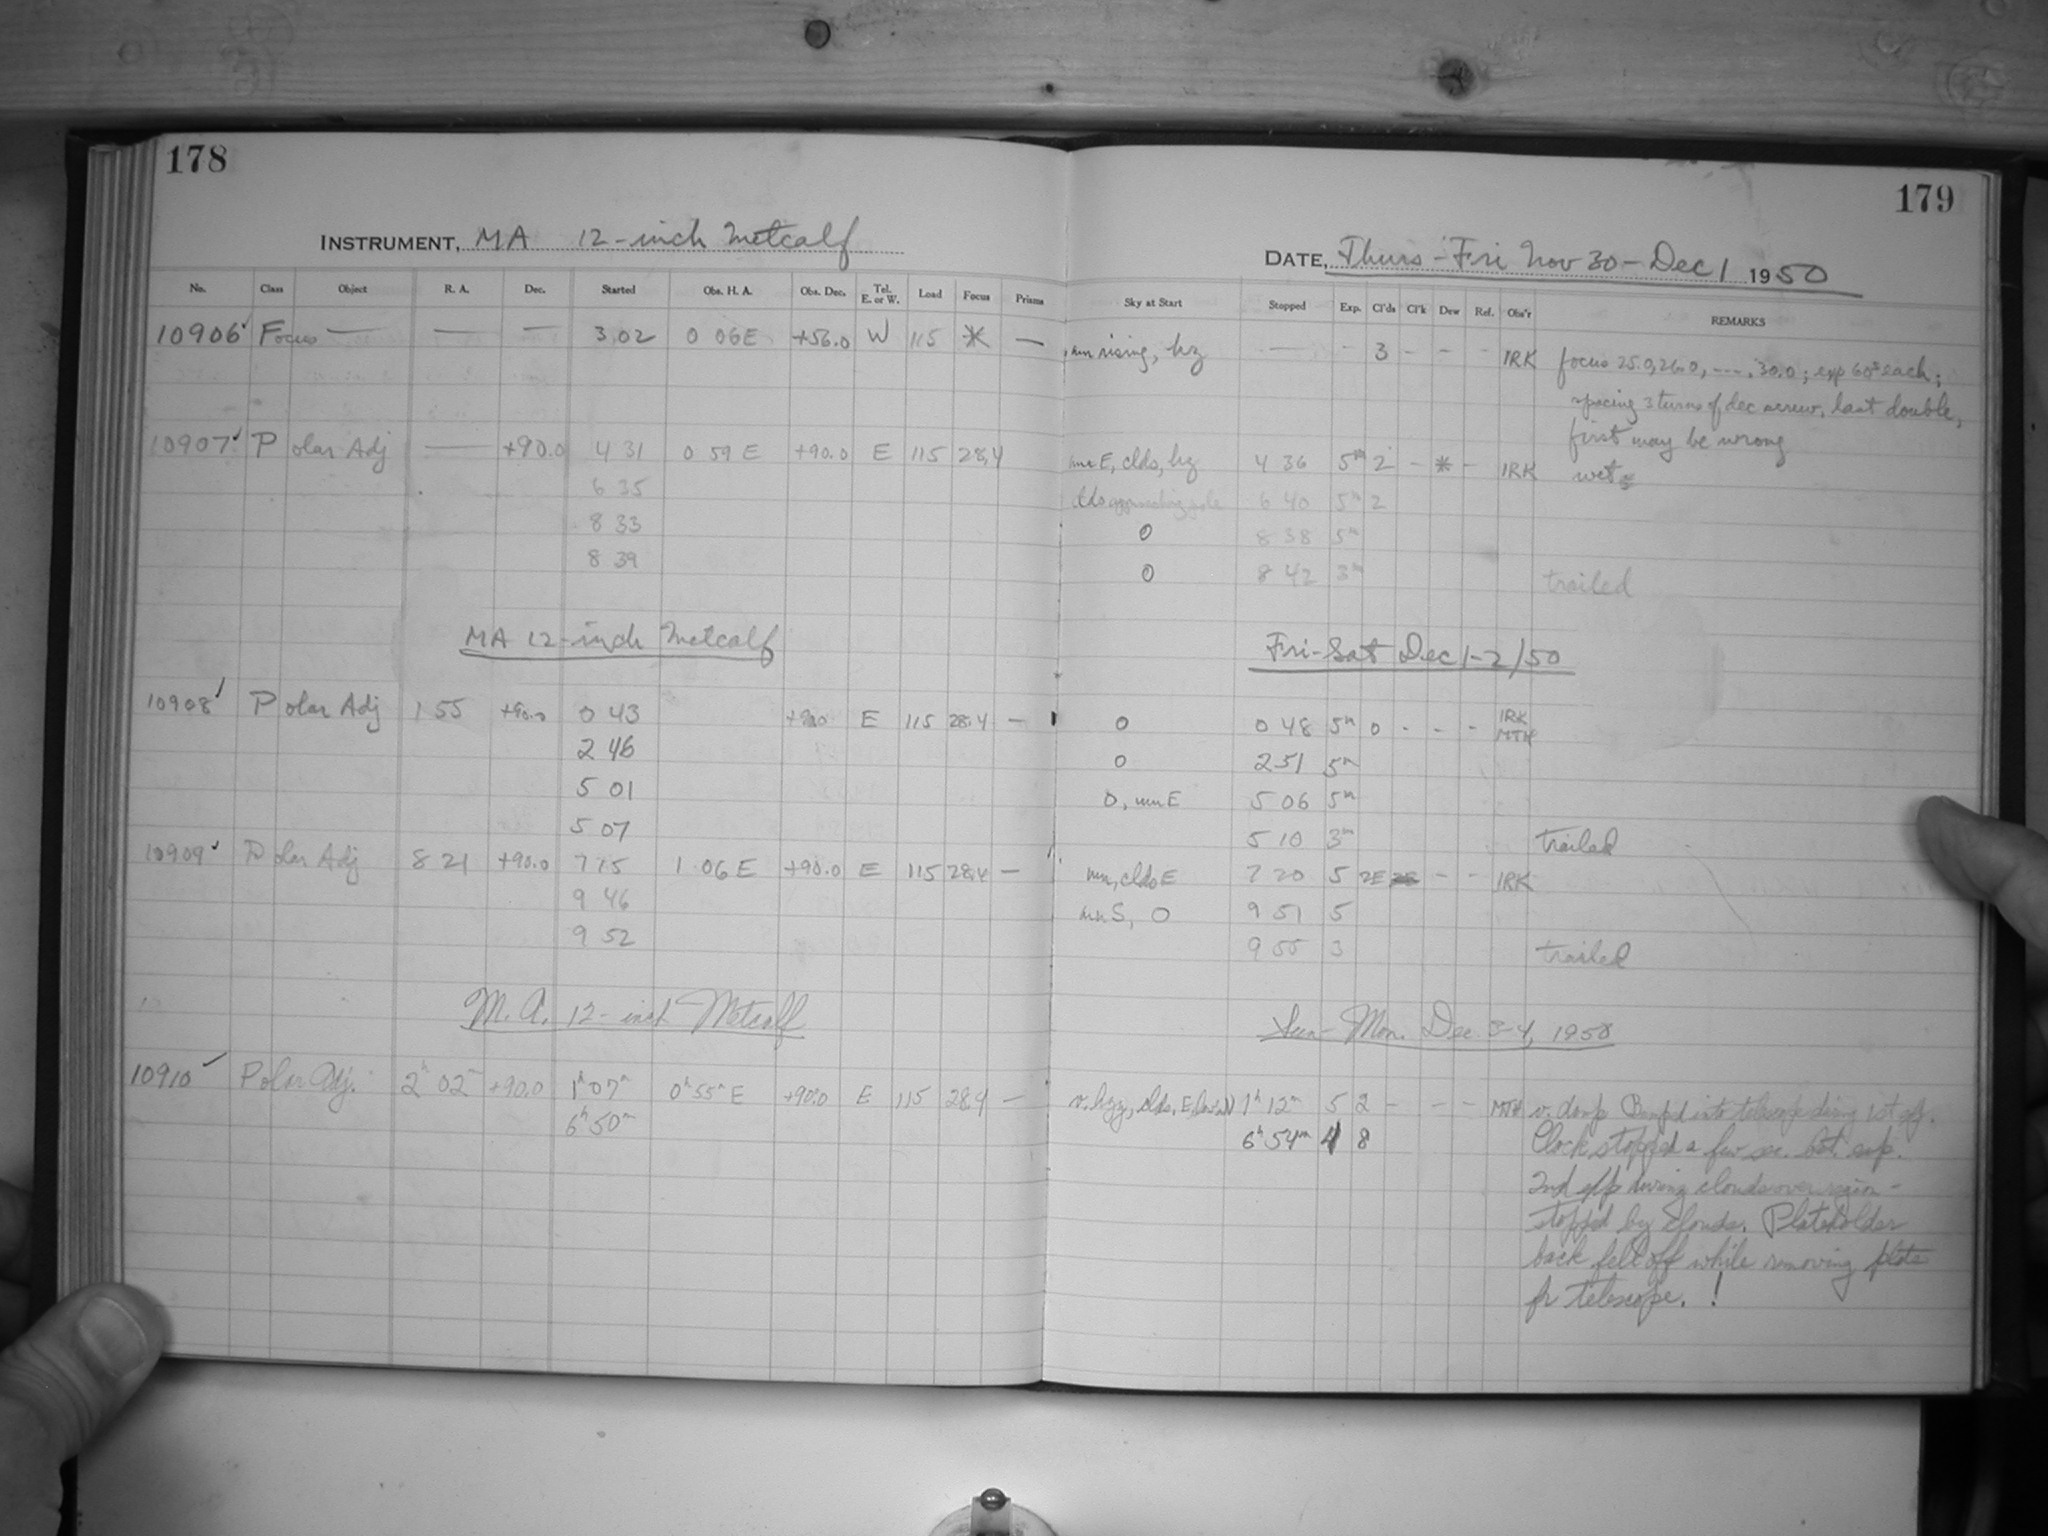 178
INSTRUMENT, MA 12-inch Metcalf
No. Class Object R. A. Dec. Started Obs. H. A. Obs. Dec. Tel. E. or W. Load Focus Prisms
10906✓ Focus — — — 3 02 0 06 E +56.0 W 115 * —
10907✓ Polar Adj — +90.0 4 31 0 59 E +90.0 E 115 28.4
6 35
8 33
8 39
MA 12-inch Metcalf
10908✓ Polar Adj 1 55 +90.0 0 43 +90.0 E 115 28.4 —
2 46
5 01
5 07
10909✓ Polar Adj 8 21 +90.0 7 15 1 06 E +90.0 E 115 28.4 —
9 46
9 52
M. A. 12-inch Metcalf
10910✓ Polar Adj. 2h 02m +90.0 1h 07m 0h 55m E +90.0 E 115 28.4 —
6h 50m
179
DATE, Thurs-Fri Nov 30-Dec 1 1950
Sky at Start Stopped Exp. Cl'ds Cl'k Dew Ref. Obs'r REMARKS
mn rising, hz — - 3 - - - IRK focus 25.0, 26.0, ---- 30.0; exp 60s each;
spacing 3 turns of dec screw, last double,
first may be wrong
mn E, clds, hz 4 36 5m 2 - * - IRK wet
clds approaching pole 6 40 5m 2
0 8 38 5m
0 8 42 3m trailed
Fri-Sat Dec 1-2/50
0 0 48 5m 0 - - - IRK MTH
0 2 51 5m
0, mn E 5 06 5m
5 10 3m trailed
mn, clds E 7 20 5 2E - - IRK
mn S, 0 9 51 5
9 55 3 trailed
Sun-Mon. Dec. 3-4, 1950
v. hzy, clds. E, 1h 12m 5 2 - - - MTH v. damp Bumped into telescope during 1st exp.
6h 54m 4 8 Clock stopped a few sec. bet. exp.
2nd exp during clouds over region -
stopped by clouds. Plateholder
back fell off while removing plate
fr telescope. !